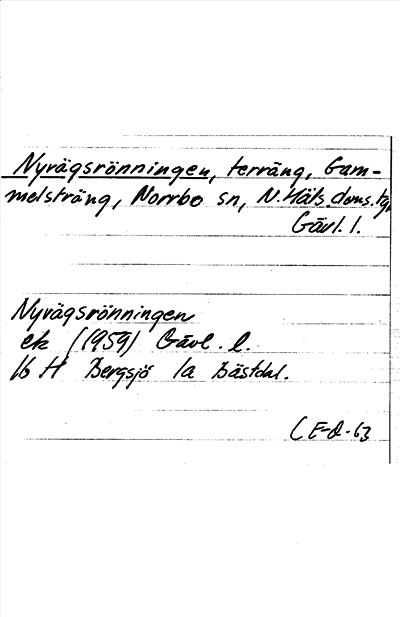 Nyvägsrönningen, terräng, Gam-
melsträng, Norrbo sn, N. Häls. doms. tg,
Gävl. l.
Nyvägsrönningen
ek (1959) Gävl. l.
16 H Bergsjö 1a Bästdal.
CE-Q-63